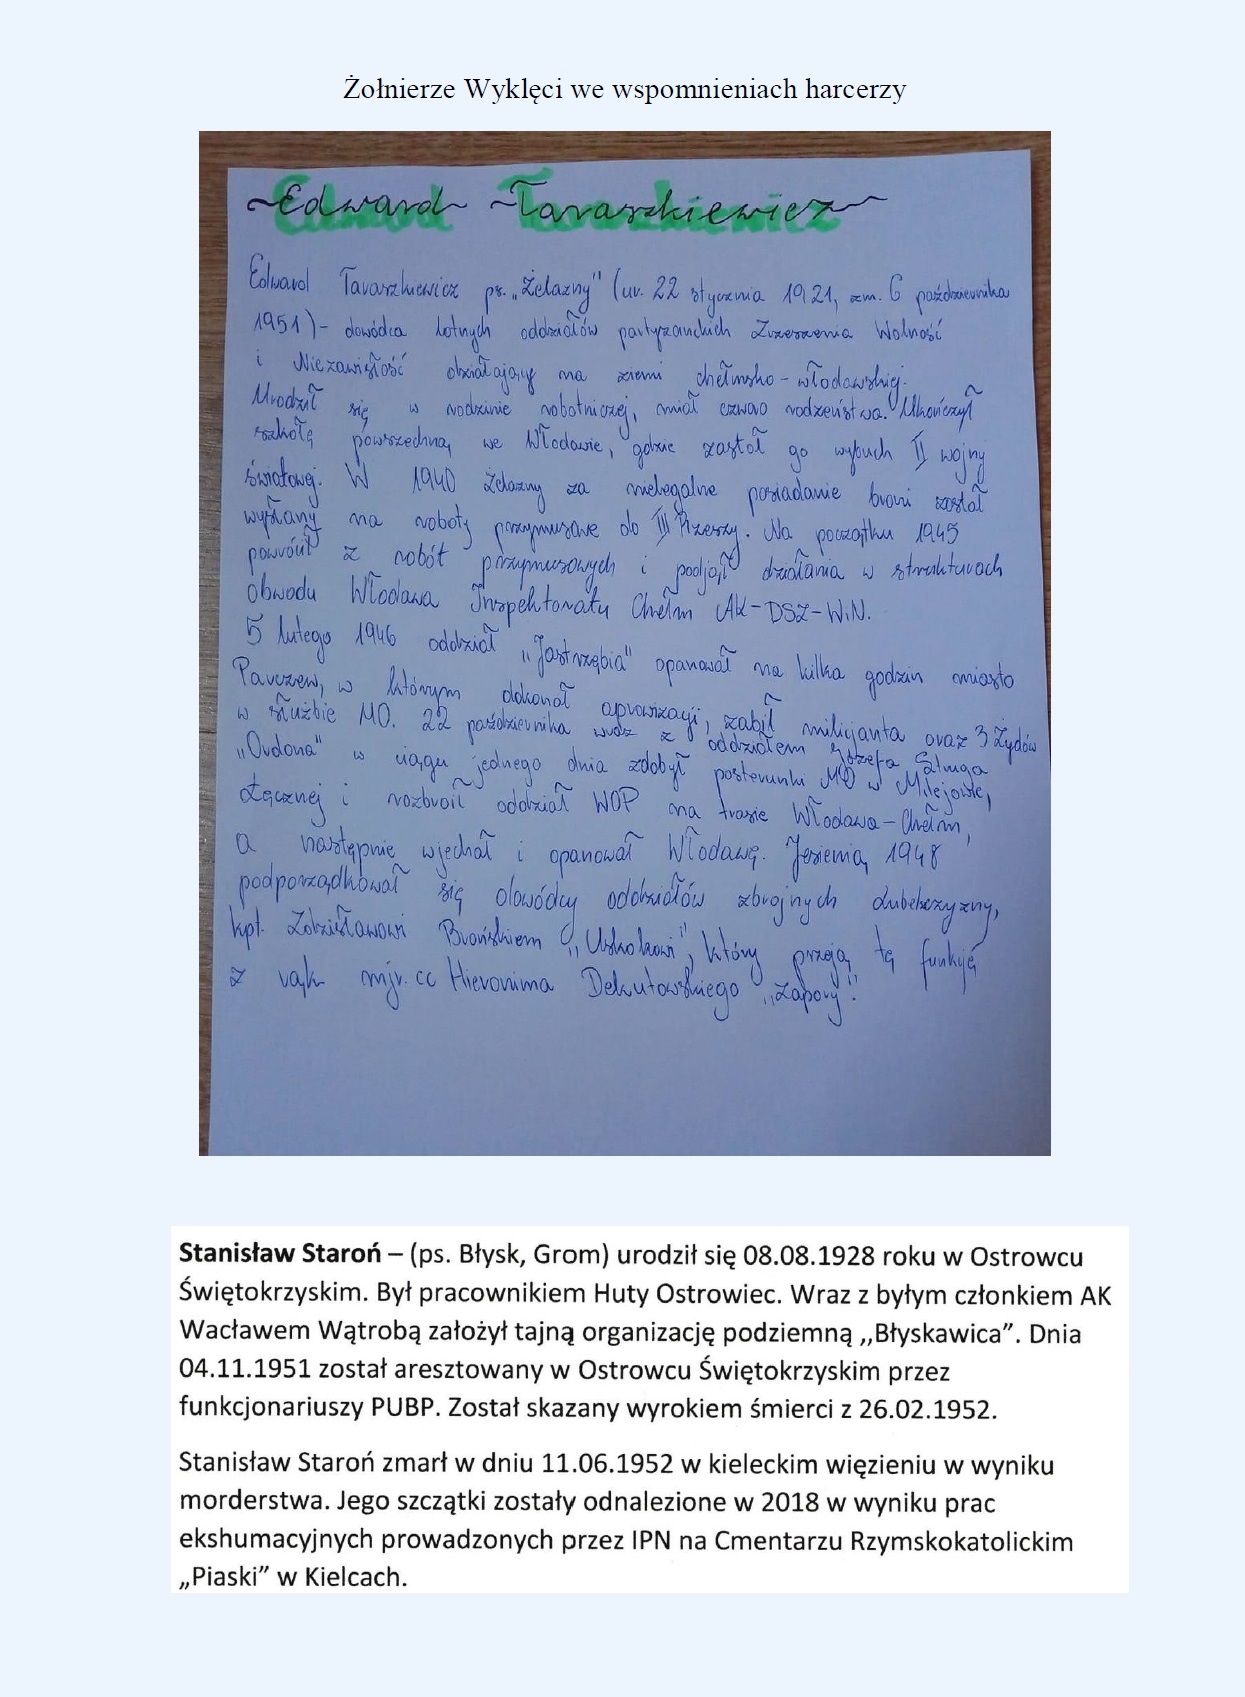 Żołnierze Wyklęci we wspomnieniach harcerzy
~Edward~ ~Taraszkiewicz~
Edward Taraszkiewicz ps. „Żelazny" (ur. 22 stycznia 1921, zm. 6 października
1951) - dowódca lotnych oddziałów partyzanckich Zrzeszenia Wolność
i Niezawisłość działający na ziemi chełmsko-włodawskiej.
Urodził się w rodzinie robotniczej, miał czworo rodzeństwa. Ukończył
szkołę powszechną we Włodawie, gdzie zastał go wybuch II wojny
światowej. W 1940 Żelazny za nielegalne posiadanie broni został
wysłany na roboty przymusowe do III Rzeszy. Na początku 1945
powrócił z robót przymusowych i podjął działania w strukturach
obwodu Włodawa Inspektoratu Chełm AK-DSZ-WiN.
5 lutego 1946 oddział „Jastrzębia" opanował na kilka godzin miasto
Parczew, w którym dokonał aprowizacji, zabił milicjanta oraz 3 Żydów
w służbie MO. 22 października wraz z oddziałem Józefa Struga
„Ordona" w ciągu jednego dnia zdobył posterunki MO w Milejowie,
Łęcznej i rozbroił oddział WOP na trasie Włodawa-Chełm,
a następnie wjechał i opanował Włodawę. Jesienią 1948
podporządkował się dowódcy oddziałów zbrojnych Lubelszczyzny,
kpt. Zdzisławowi Brońskiem „Uskokowi", który przeją tą funkję
z rąk mjr. cc Hieronima Dekutowskiego „Zapory".
Stanisław Staroń – (ps. Błysk, Grom) urodził się 08.08.1928 roku w Ostrowcu
Świętokrzyskim. Był pracownikiem Huty Ostrowiec. Wraz z byłym członkiem AK
Wacławem Wątrobą założył tajną organizację podziemną ,,Błyskawica”. Dnia
04.11.1951 został aresztowany w Ostrowcu Świętokrzyskim przez
funkcjonariuszy PUBP. Został skazany wyrokiem śmierci z 26.02.1952.
Stanisław Staroń zmarł w dniu 11.06.1952 w kieleckim więzieniu w wyniku
morderstwa. Jego szczątki zostały odnalezione w 2018 w wyniku prac
ekshumacyjnych prowadzonych przez IPN na Cmentarzu Rzymskokatolickim
„Piaski” w Kielcach.